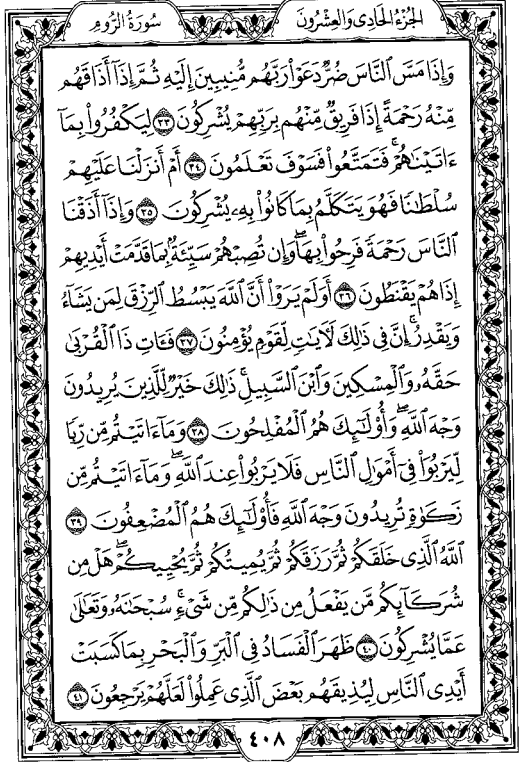 الجُزْءُ الحَادِى وَالعِشْرُونَ سُورَةُ الرُّومِ
وَإِذَا مَسَّ ٱلنَّاسَ ضُرٌّ دَعَوْا۟ رَبَّهُم مُّنِيبِينَ إِلَيْهِ ثُمَّ إِذَآ أَذَاقَهُم
مِّنْهُ رَحْمَةً إِذَا فَرِيقٌ مِّنْهُم بِرَبِّهِمْ يُشْرِكُونَ ٣٣ لِيَكْفُرُوا۟ بِمَآ
ءَاتَيْنَٰهُمْ ۚ فَتَمَتَّعُوا۟ فَسَوْفَ تَعْلَمُونَ ٣٤ أَمْ أَنزَلْنَا عَلَيْهِمْ
سُلْطَٰنًا فَهُوَ يَتَكَلَّمُ بِمَا كَانُوا۟ بِهِۦ يُشْرِكُونَ ٣٥ وَإِذَآ أَذَقْنَا
ٱلنَّاسَ رَحْمَةً فَرِحُوا۟ بِهَا ۖ وَإِن تُصِبْهُمْ سَيِّئَةٌۢ بِمَا قَدَّمَتْ أَيْدِيهِمْ
إِذَا هُمْ يَقْنَطُونَ ٣٦ أَوَلَمْ يَرَوْا۟ أَنَّ ٱللَّهَ يَبْسُطُ ٱلرِّزْقَ لِمَن يَشَآءُ
وَيَقْدِرُ ۚ إِنَّ فِى ذَٰلِكَ لَءَايَٰتٍ لِّقَوْمٍ يُؤْمِنُونَ ٣٧ فَـَٔاتِ ذَا ٱلْقُرْبَىٰ
حَقَّهُۥ وَٱلْمِسْكِينَ وَٱبْنَ ٱلسَّبِيلِ ۚ ذَٰلِكَ خَيْرٌ لِّلَّذِينَ يُرِيدُونَ
وَجْهَ ٱللَّهِ ۖ وَأُو۟لَٰٓئِكَ هُمُ ٱلْمُفْلِحُونَ ٣٨ وَمَآ ءَاتَيْتُم مِّن رِّبًا
لِّيَرْبُوَا۟ فِىٓ أَمْوَٰلِ ٱلنَّاسِ فَلَا يَرْبُوا۟ عِندَ ٱللَّهِ ۖ وَمَآ ءَاتَيْتُم مِّن
زَكَوٰةٍ تُرِيدُونَ وَجْهَ ٱللَّهِ فَأُو۟لَٰٓئِكَ هُمُ ٱلْمُضْعِفُونَ ٣٩
ٱللَّهُ ٱلَّذِى خَلَقَكُمْ ثُمَّ رَزَقَكُمْ ثُمَّ يُمِيتُكُمْ ثُمَّ يُحْيِيكُمْ ۖ هَلْ مِن
شُرَكَآئِكُم مَّن يَفْعَلُ مِن ذَٰلِكُم مِّن شَىْءٍ ۚ سُبْحَٰنَهُۥ وَتَعَٰلَىٰ
عَمَّا يُشْرِكُونَ ٤٠ ظَهَرَ ٱلْفَسَادُ فِى ٱلْبَرِّ وَٱلْبَحْرِ بِمَا كَسَبَتْ
أَيْدِى ٱلنَّاسِ لِيُذِيقَهُم بَعْضَ ٱلَّذِى عَمِلُوا۟ لَعَلَّهُمْ يَرْجِعُونَ ٤١
٤٠٨